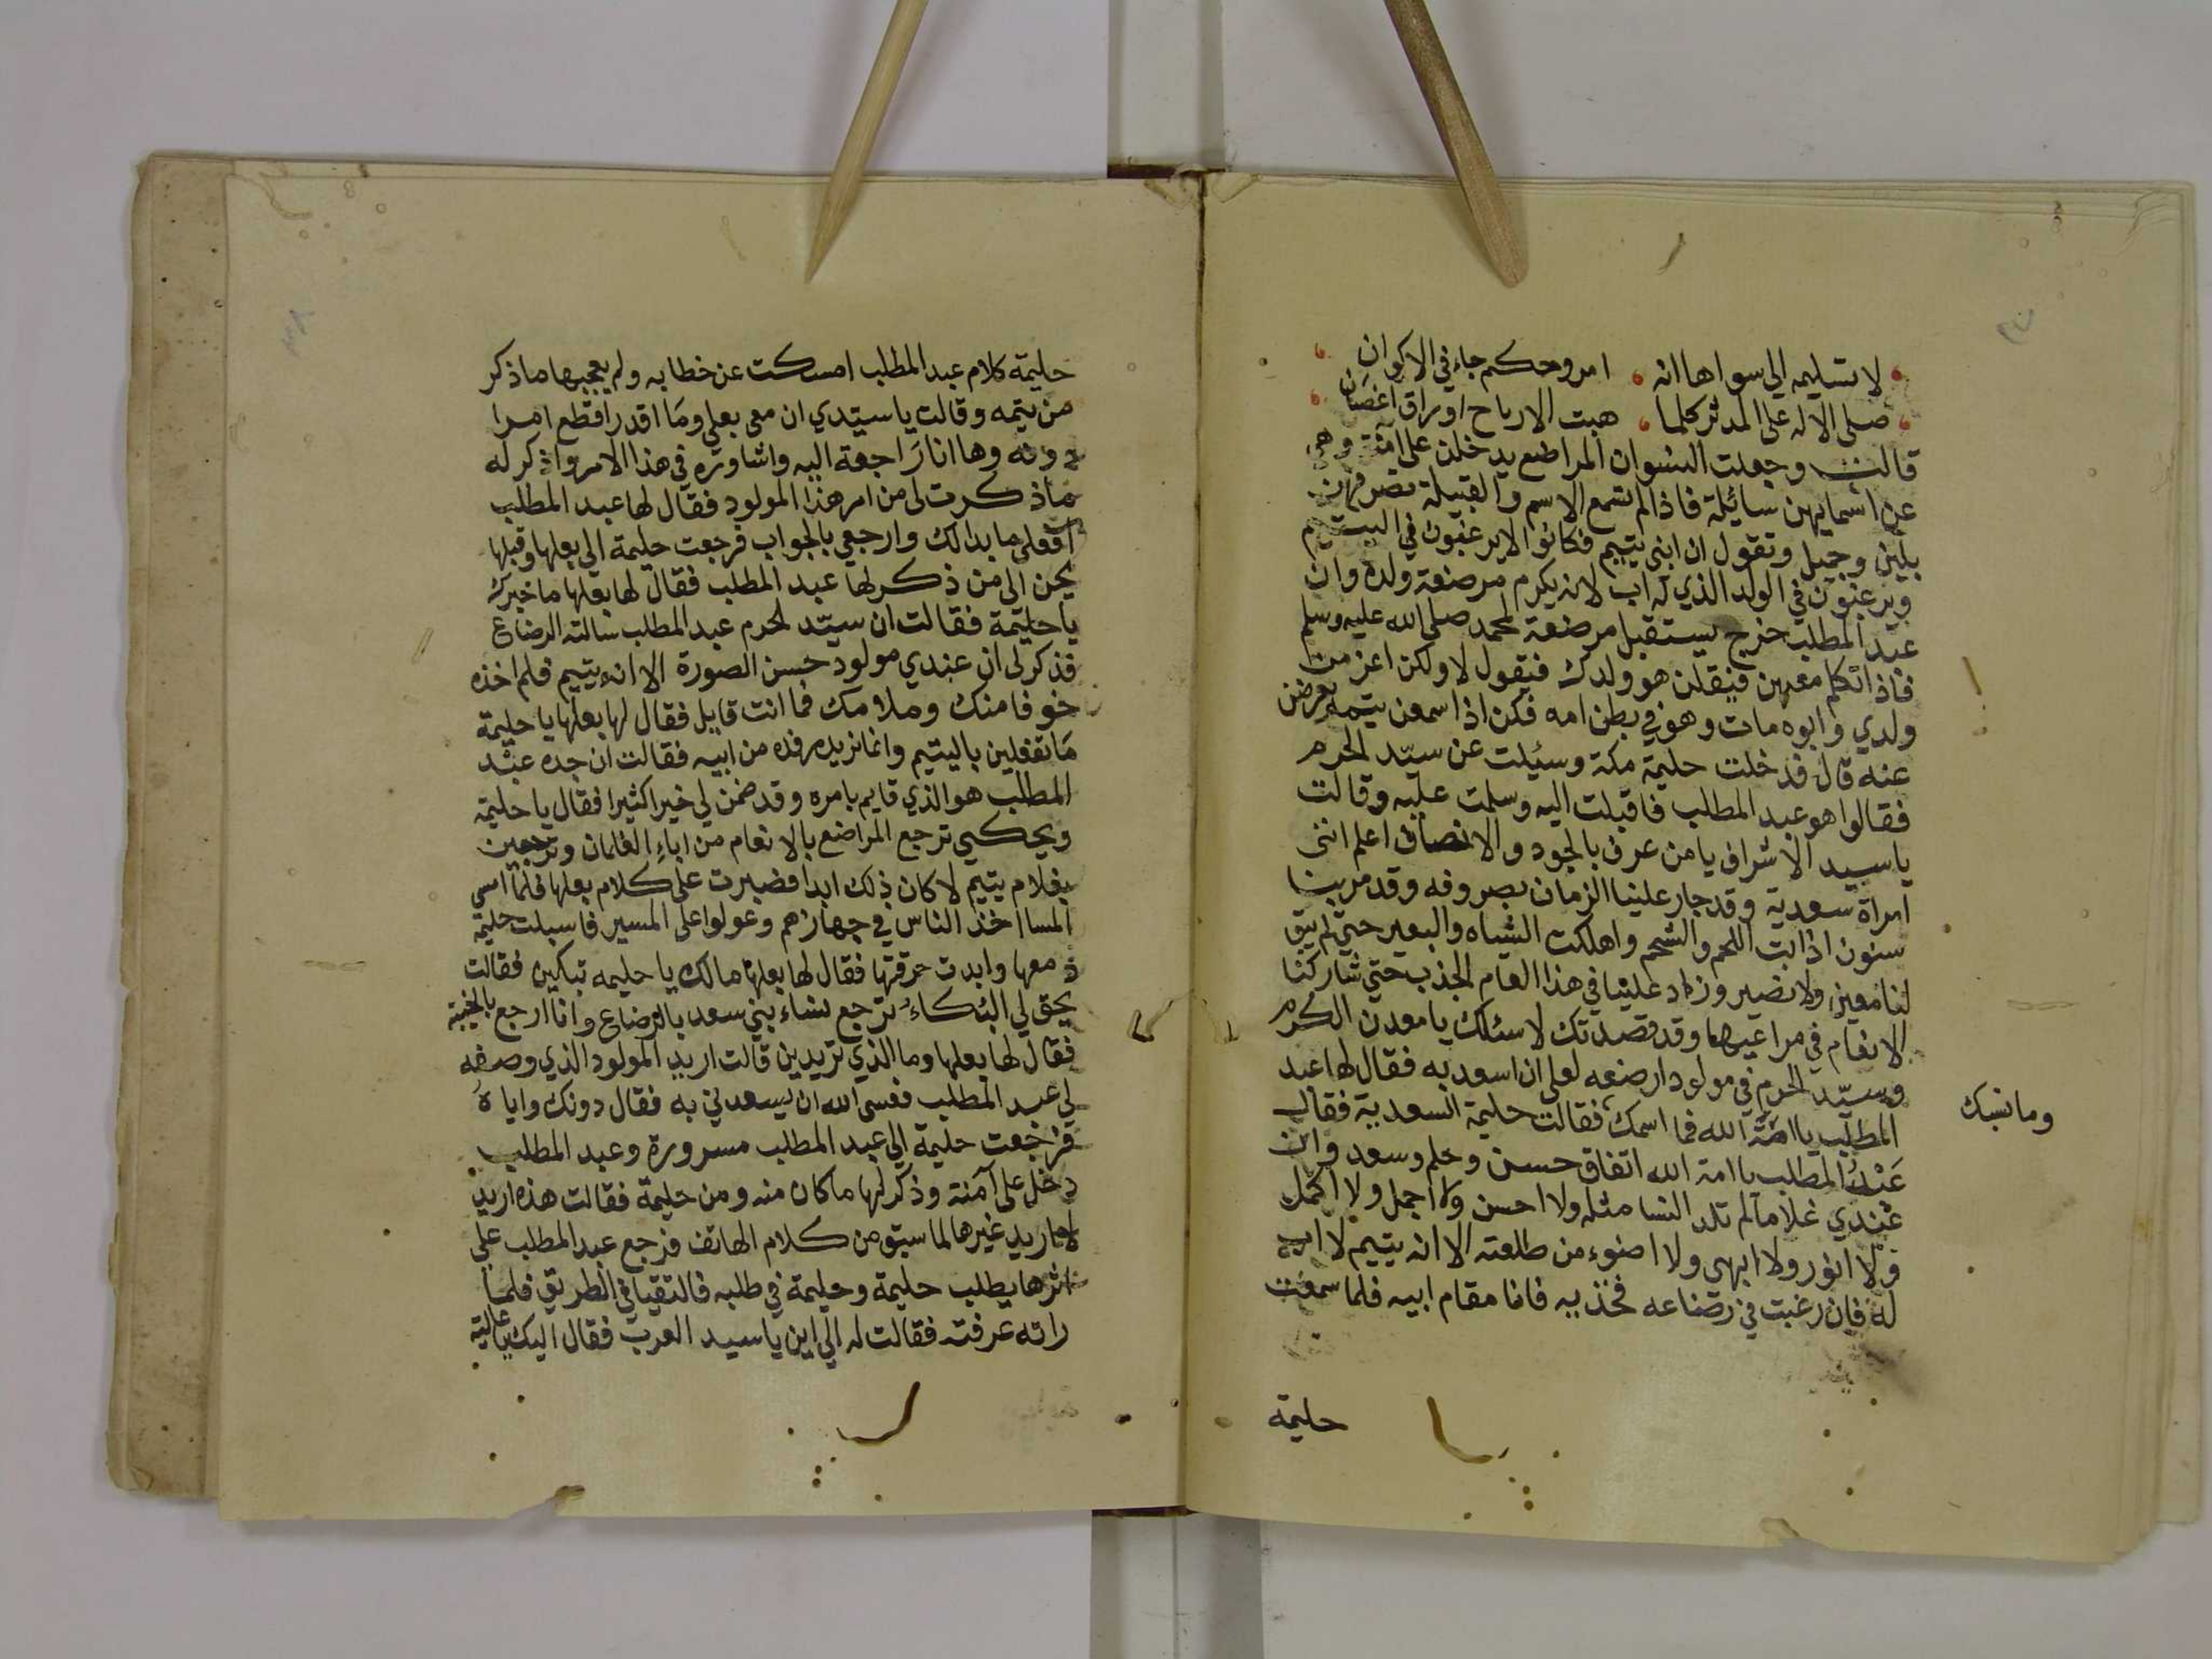 لا تسليمه الي سواها انه امر وحكم جاء في الاكوان
صلي الاله علي المدثر كلما هبت الارياح اوراق اغصان
قالت وجعلت النسوان المراضع يدخلن علي آمنة وهي
عن اسمايهن سائلة فاذا لم تسمع الاسم والقبيلة تصرفهن
بلين وجميل وتقول ان ابني يتيم فكانوا لا يرغبون في اليتيم
ويرغبون في الولد الذي له اب لانه يكرم مرضعة ولده وان
عبد المطلب خرج يستقبل مرضعة لمحمد صلي الله عليه وسلم
فاذا تكلم معهن فيقلن هو ولدك فيقول لا ولكن اعز من
ولدي وابوه مات وهو في بطن امه فكن اذا سمعن يتمه يعرضن
عنه قال فدخلت حليمة مكة وسئيلت عن سيّد الحرم
فقالوا هو عبد المطلب فاقبلت اليه وسلمت عليه وقالت
يا سيد الاشراف يا من عرف بالجود والانصاف اعلم انني
امراة سعدية وقد جار علينا الزمان بصروفه وقد مر بنا
سنون اذابت اللحم والشحم واهلكت الشياه والبعير حتي لم يبق
لنا معين ولا نصير وزاد علينا في هذا العام الجذب حتي شاركنا
الانعام في مراعيها وقد قصدتك لاسئلك يا معدن الكرم
وسيّد الحرم في مولود ارضعه لعلي ان اسعد به فقال لها عبد
المطلب يا امة الله فما اسمك فقالت حليمة السعدية فقال
وما نسبك
عَبْدُ المطلب يا امة الله اتفاق حسن وحلم وسعد وان
عندي غلاما لم تلد النسا مثله ولا احسن ولا اجمل ولا اكمل
ولا انور ولا ابهي ولا اضوء من طلعته الا انه يتيم لا اب
له فان رغبت في رضاعه فخذيه فانا مقام ابيه فلما سمعت
حليمة
حليمة كلام عبد المطلب امسكت عن خطابه ولم يعجبها ما ذكر
من يتمه وقالت يا سيّدي ان معي بعلي وما اقدر اقطع امرا
دونه وها انا راجعة اليه واشاوره في هذا الامر واذكر له
ما ذكرت لي من امر هذا المولود فقال لها عبد المطلب
افعلي ما بدا لك وارجعي بالجواب فرجعت حليمة الي بعلها وقبلها
يحن الي من ذكر لها عبد المطلب فقال لها بعلها ما خبرك
يا حليمة فقالت ان سيّد الحرم عبد المطلب سالته الرضاع
فذكر لي ان عندي مولود حسن الصورة الا انه يتيم فلم اخذه
خوفا منك وملامك فما انت قايل فقال لها بعلها يا حليمة
ما تفعلين باليتيم وانما نريد رفده من ابيه فقالت ان جده عبد
المطلب هو الذي قايم بامره وقد ضمن لي خيرا كثيرا فقال يا حليمة
ويحكي ترجع المراضع بالانعام من اباء الغلمان وترجعين
بغلام يتيم لا كان ذلك ابدا فصبرت علي كلام بعلها فلما امسي
المسا اخذ الناس في جهازهم وعولوا علي المسير فاسبلت حليمة
دمعها وابدت حرقتها فقال لها بعلها مالك يا حليمه تبكين فقالت
يحق لي البُكاءُ ترجع نساء بني سعد بالرضاع وانا ارجع بالخيبة
فقال لها بعلها وما الذي تريدين قالت اريد المولود الذي وصفه
لي عبد المطلب فعسي الله ان يسعدني به فقال دونك واياهُ
فرجعت حليمة الي عبد المطلب مسرورة وعبد المطلب
دخل علي آمنة وذكر لها ما كان منه ومن حليمة فقالت هذه اريد
لا اريد غيرها لما سبق من كلام الهاتف فرجع عبد المطلب علي
اثرها يطلب حليمة وحليمة في طلبه فالتقيا في الطريق فلما
راته عرفته فقالت له الي اين يا سيد العرب فقال اليك يا عالية